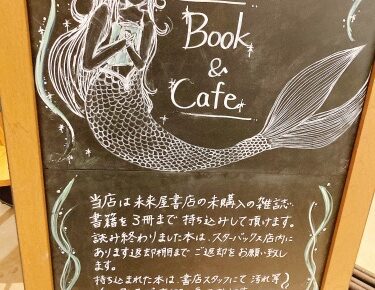 Book
&
Cafe
当店は未来屋書店の未購入の雑誌・
書籍を3冊まで持ち込みして頂けます。
読み終わりました本は、スターバックス店内に
あります返却棚目までご返却をお願い致し
ます。
持ち込まれた本は、書店スタッフにて汚れ等